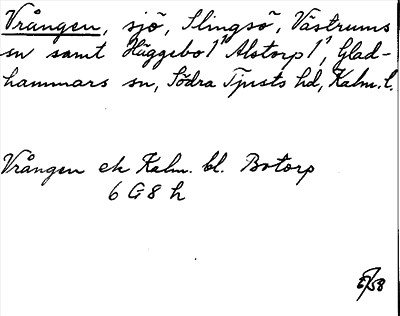 Vrången, sjö, Slingsö, Västrums
sn samt Häggebo 1" Alstorp 1', Glad-
hammars sn, Södra Tjusts hd, Kalm. l.
Vrången ek Kalm. bl. Botorp
6 G 8 h
/58